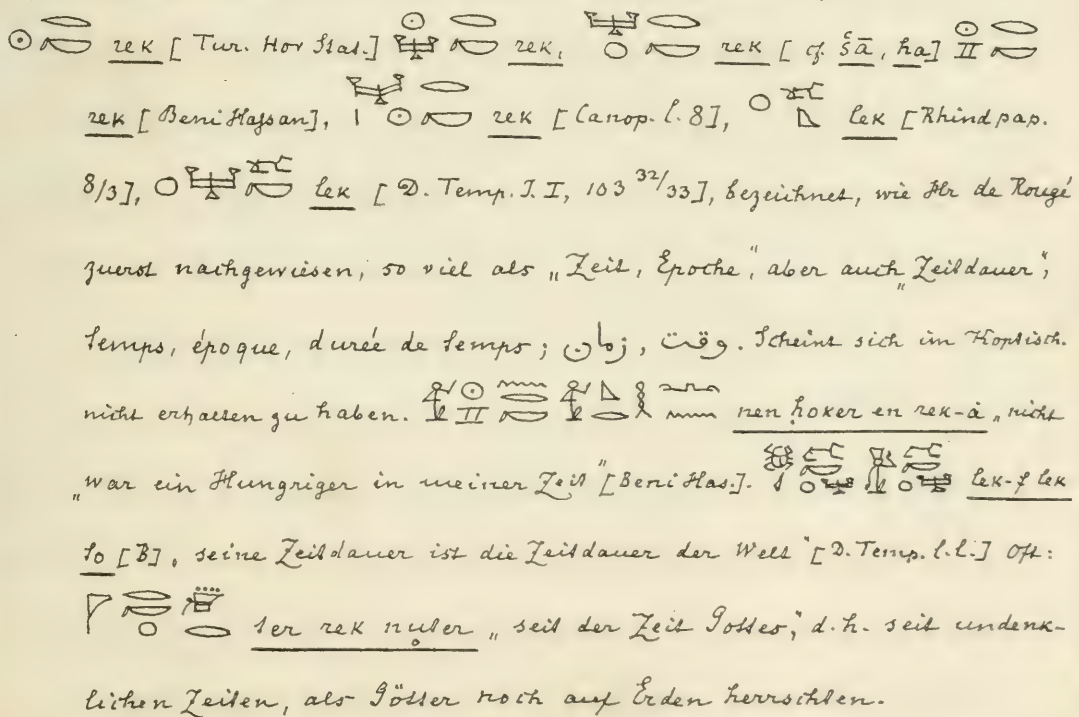 rek [Tur. Hor Stat.] rek, rek [cf. šā, ha]
rek [Beni Hassan], rek [Canop. l. 8], lek [Rhind pap.
8/3], lek [D. Temp. I. I, 103 32/33], bezeichnet, wie Hr de Rougé
zuerst nachgewiesen, so viel als „Zeit, Epoche", aber auch „Zeitdauer",
temps, époque, durée de temps; زمان, وقت. Scheint sich im Koptisch.
nicht erhalten zu haben. nen ḥoker en rek-à „nicht
„war ein Hungriger in meiner Zeit" [Beni Has.]. lek-f lek
to [B] „seine Zeitdauer ist die Zeitdauer der Welt" [D. Temp. l. l.] Oft:
ter rek nuter „seit der Zeit Gottes", d. h. seit undenk-
lichen Zeiten, als Götter noch auf Erden herrschten.